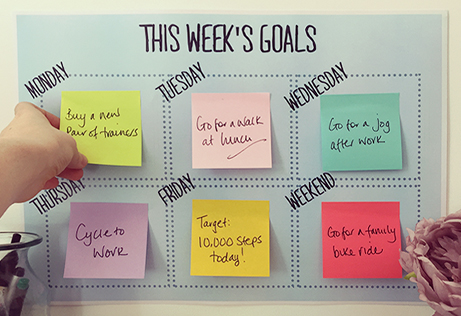 THIS WEEK'S GOALS
MONDAY
Buy a new
Pair of trainers
TUESDAY
Go for a walk
at lunch
WEDNESDAY
Go for a jog
after work
THURSDAY
Cycle to
Work
FRIDAY
Target:
10,000 steps
today!
WEEKEND
Go for a family
bike ride